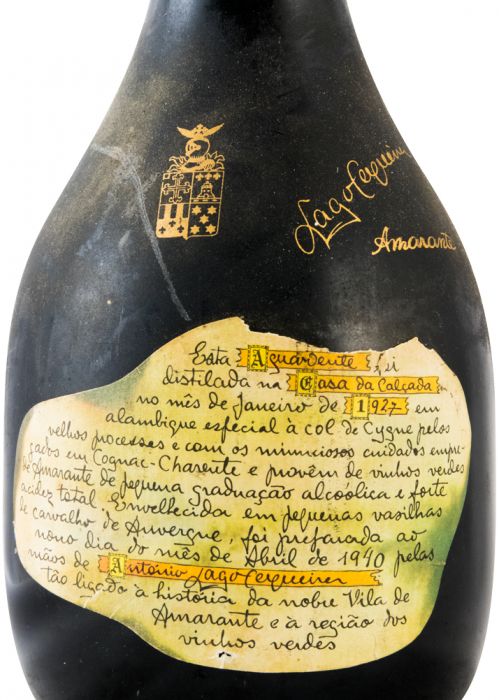 Lago Cerqueira
Amarante
Esta Aguardente foi
distilada na Casa da Calçada
no mês de Janeiro de 1927 em
alambique especial à col de Cygne pelos
velhos processos e com os minuciosos cuidados empre-
gados em Cognac-Charente e provêm de vinhos verdes
de Amarante de pequena graduação alcoólica e forte
acidez total. Envelhecida em pequenas vasilhas
de carvalho de Auvergne, foi preparada ao
nono dia do mês de Abril de 1940 pelas
mãos de António Lago Cerqueira
tão ligado à história da nobre Vila de
Amarante e à região dos
vinhos verdes